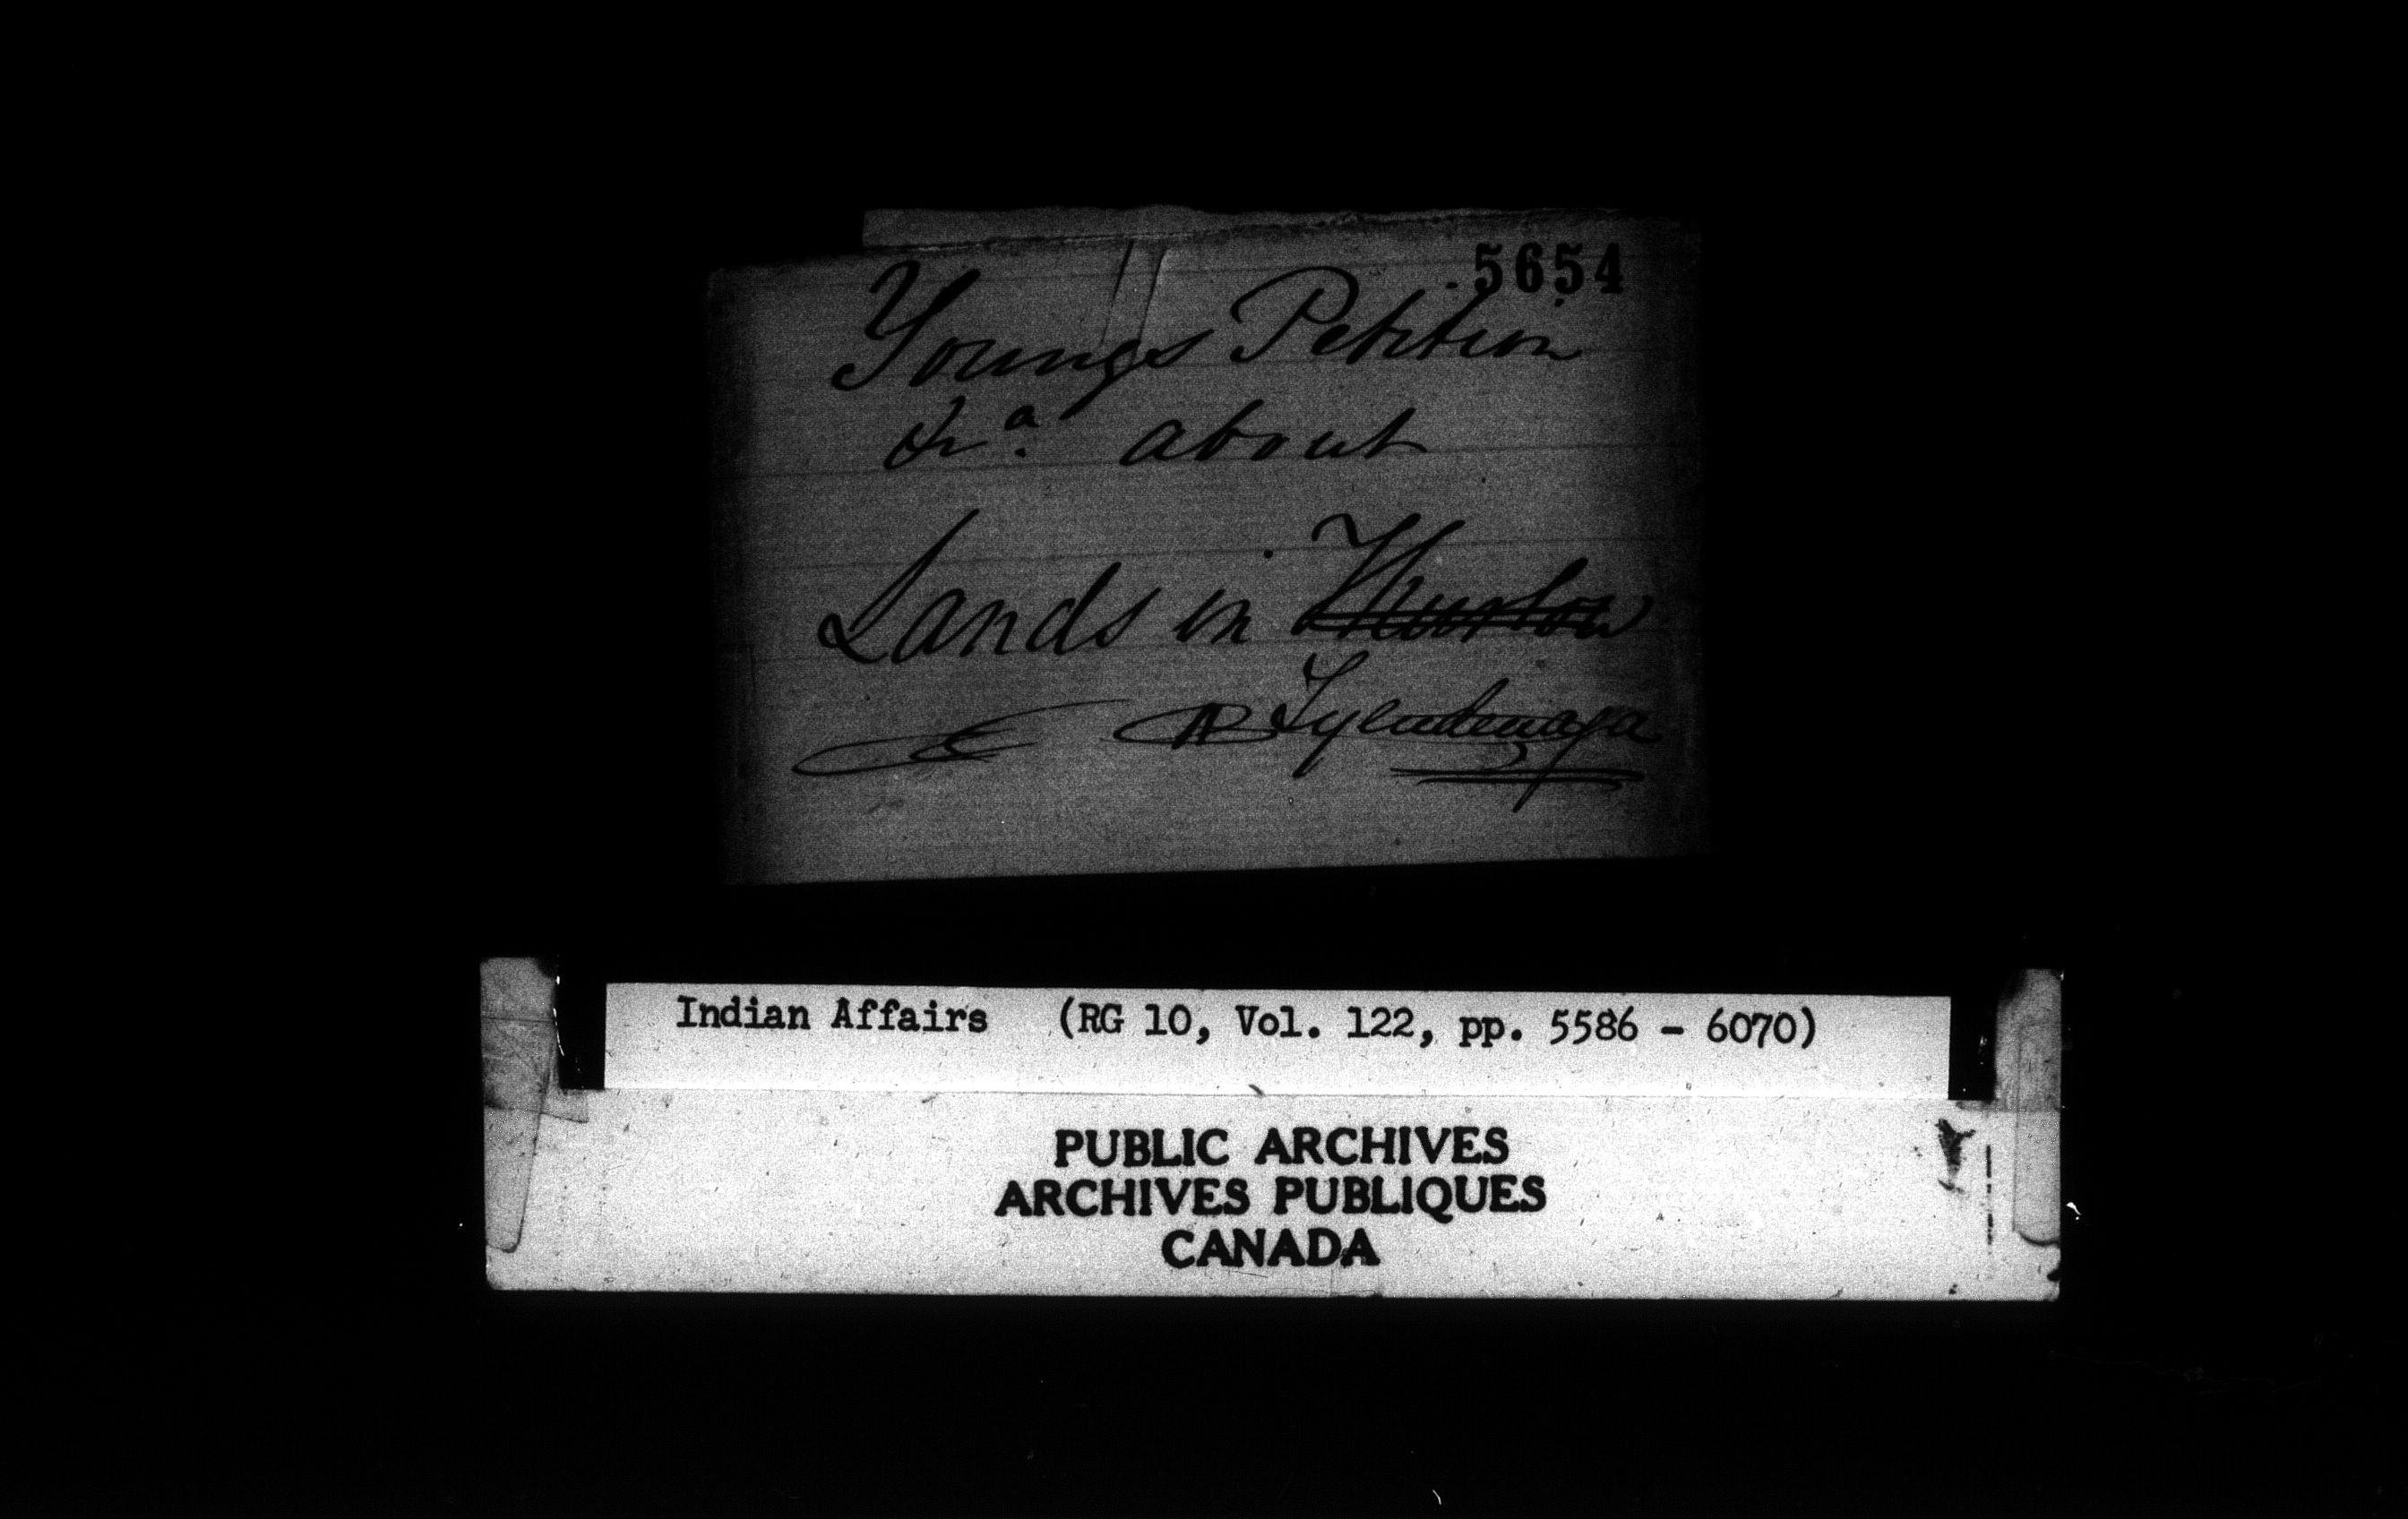 5654
Youngs Petition
&rª. about
Lands in Thurlow
Tyendenaga
Indian Affairs (RG 10, Vol. 122, pp. 5586 - 6070)
PUBLIC ARCHIVES
ARCHIVES PUBLIQUES
CANADA